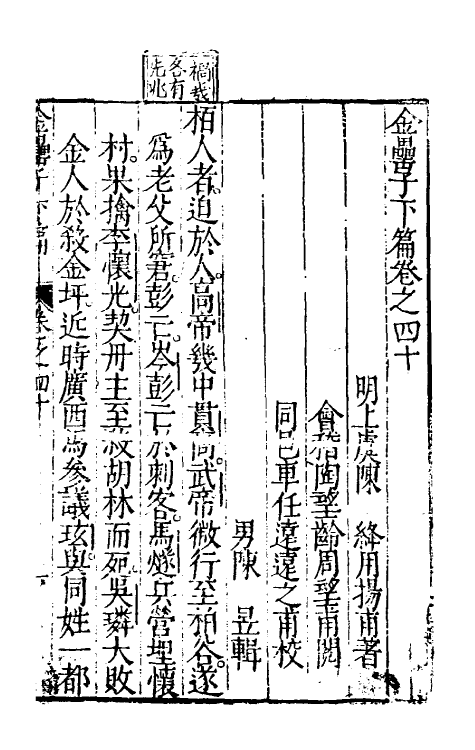 禍
各有
先兆
金罍子下篇卷之四十
明上虞陳　絳用揚甫著
會稽陶望齡周望甫閱
同邑車任遠遠之甫校
男陳　昱輯
栢人者迫於人高帝幾中貫高武帝微行至栢谷遂
爲老父所窘彭亡岑彭亡於刺客馬燧兵營埋懷
村果擒李懷光契丹主至殺胡林而死吳璘大敗
金人於殺金坪近時廣西馬參議玹與同姓一都
金罍子下篇　卷之四十